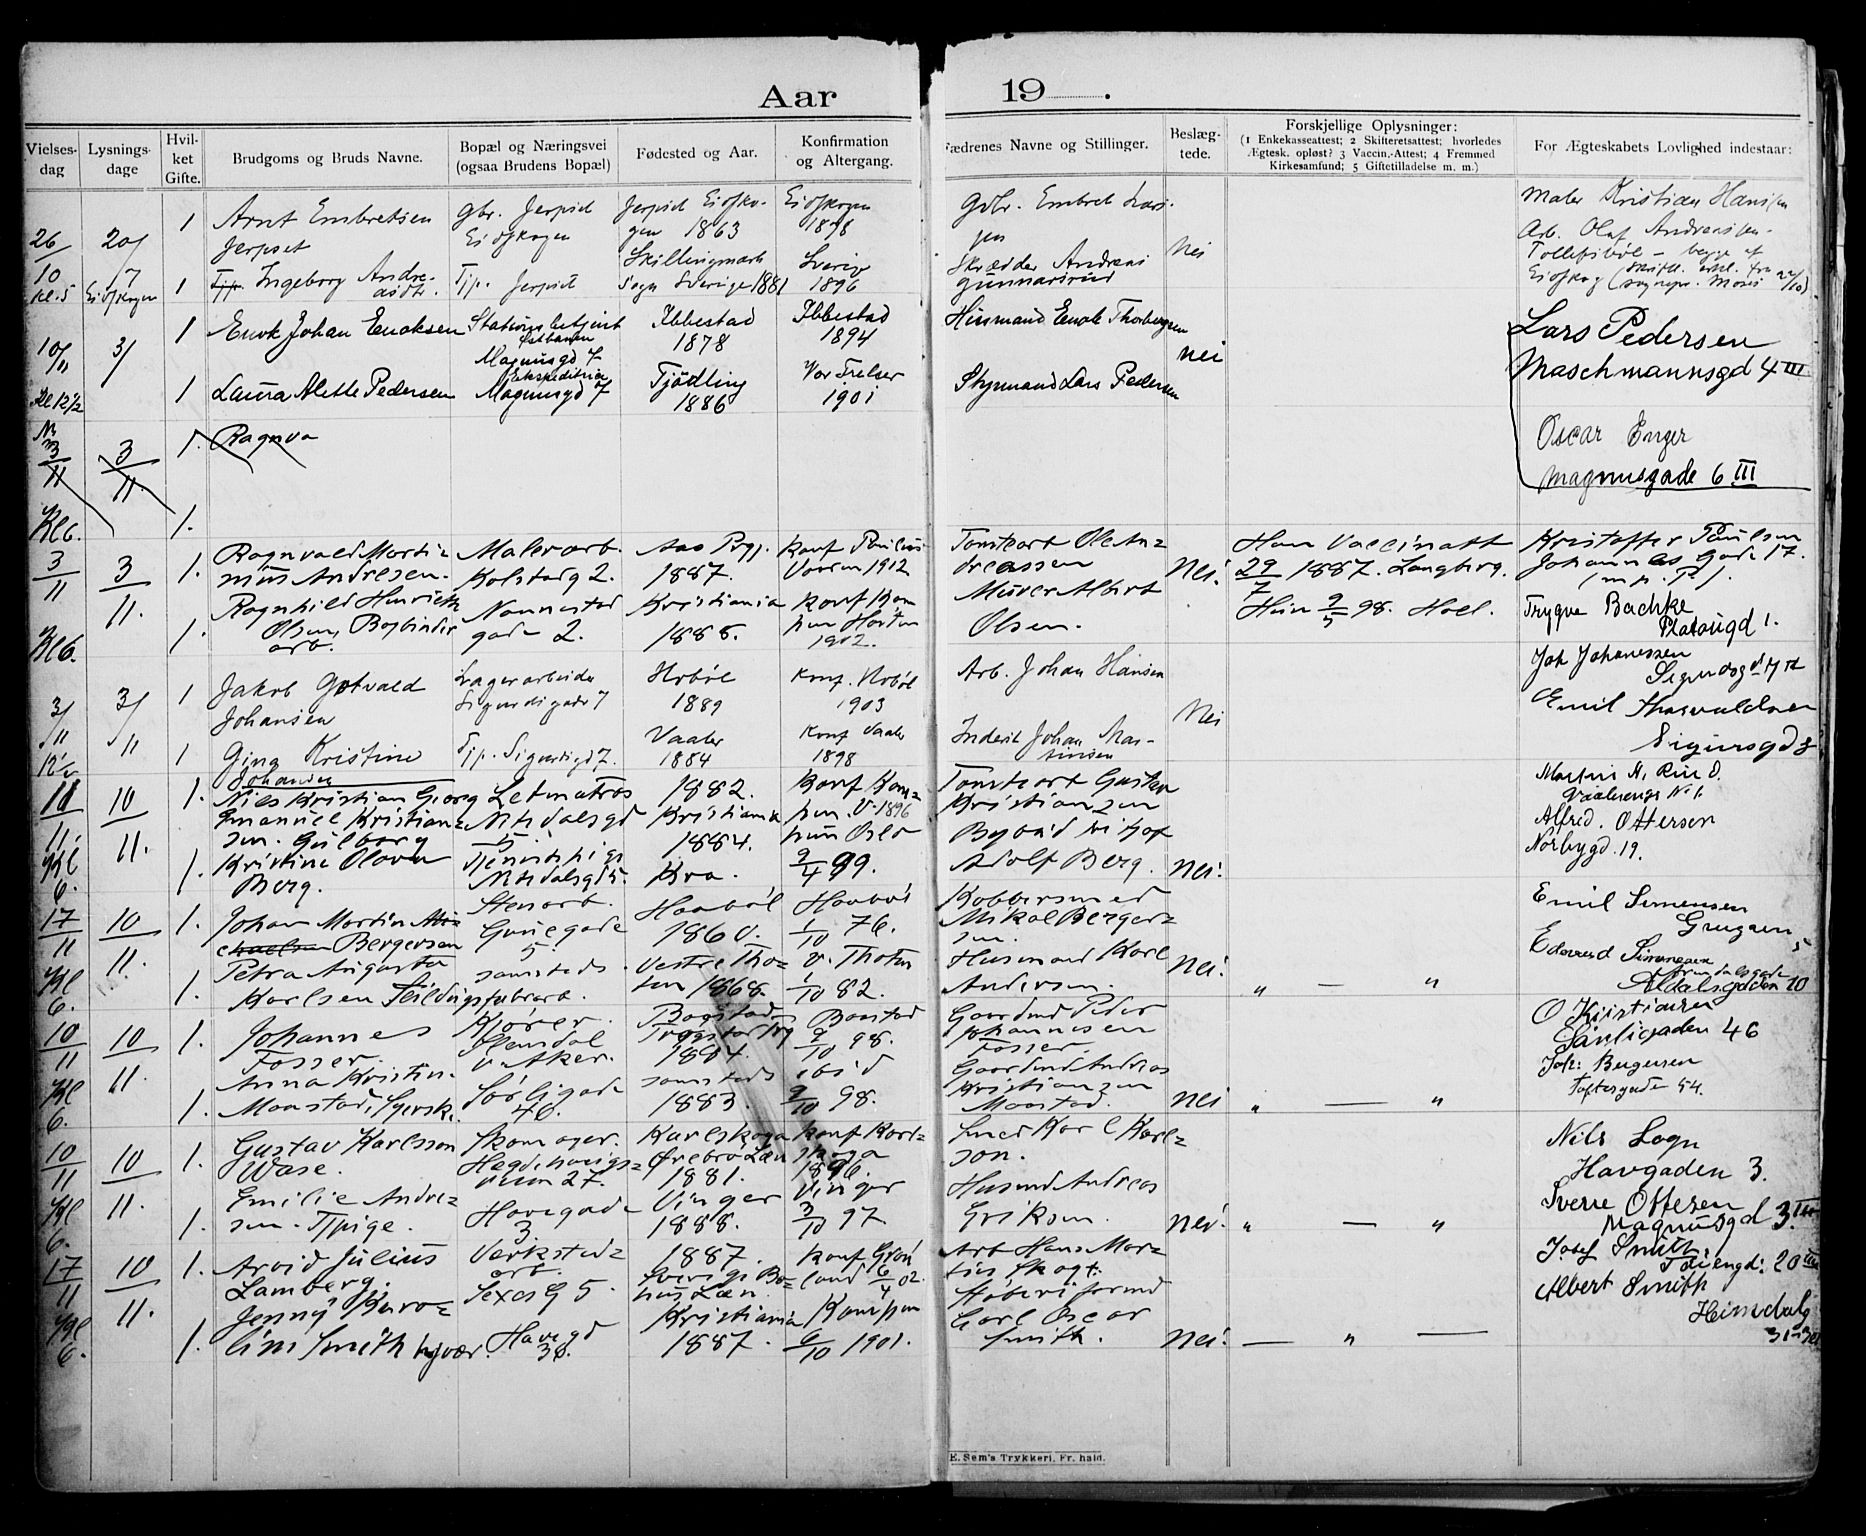 Aar
19 .
Vielses-
dag
Lysnings-
dage
Hvil-
ket
Gifte.
Brudgoms og Bruds Navne.
Bopæl og Næringsvei
(ogsaa Brudens Bopæl)
Fødested og Aar.
Konfirmation
og Altergang.
Fædrenes Navne og Stillinger.
Beslæg-
tede.
Forskjellige Oplysninger:
(1 Enkekasseattest; 2 Skifteretsattest; hvorledes
Ægtesk. opløst? 3 Vaccin.-Attest; 4 Fremmed
Kirkesamfund; 5 Giftetilladelse m. m.)
For Ægteskabets Lovlighed indestaar:
26/10 Kl. 5
20/7 Eidskogen
1 Arnt Embretsen
Jerpset
Gbr. Jerpset
Eidskogen
Jerpset Eidsko-
gen 1863
Eidskogen
1878
Gbr. Embret Lars-
sen
Nei
Maler Kristian Hansen
Arb. Olaf Andreassen
Tollefsbøl - begge af
Eidskog
1 Tjp. Ingeborg Andre-
asdtr.
Tjp. Jerpset
Skillingmark
Sogn Sverige 1881
Sverige
1896
Skrædder Andreas
Gunnarsrud
10/11 Kl 12 1/2
3/
1 Enok Johan Enoksen
Stationsbetjent
Østbanen
Magnusgd 7
Ibbestad
1878
Ibbestad
1894
Husmand Enok Thorbergsen
nei
Lars Pedersen
Maschmannsgd 4 III
1 Laura Alette Pedersen
Ekspeditrice
Magnusgd 7
Tjödling
1886
Vor Frelser
1901
Styrmand Lars Pedersen
Oscar Enger
Magnusgade 6 III
3/11 Kl 6.
3/11.
1. Ragnva
1.
3/11 Kl 6.
3/11.
1. Ragnvald Marti-
nius Andresen.
Malerarb.
Kolstadg 2.
Aas Pgj.
1887.
Konf Paulus
Vaaren 1912
Tomtkart Ole An-
dreassen
Nei.
Han Vaccinatt
29/7 1887. Langberg.
Kristoffer Paulsen
Johannes Gade 17.
(m. p. P.).
1. Ragnhild Henriette
Olsen, Bogbinder
arb.
Nannestad
gade 2.
Kristiania
1888.
Konf Kam
pen Høsten
1902.
Murer Albert
Olsen.
Hun 9/5 98. Hoel.
Trygve Bachke
Platougd 1.
3/11 12 1/2
3/11
1 Jakob Gotvald
Johansen
Lagerarbeider
Sigurdsgade 7
Hobøl
1889
Konf. Hobøl
1903
Arb. Johan Hansen
Nei
Joh Johanessen
Sigurdsgd 7
Emil Thorvaldsen
Sigursgd 8
1 Gina Kristine
Johansen
Tjp. Sigurdsgd 7.
Vaaler
1884
Konf Vaaler
1898
Inderst Johan Mar-
tinsen
11/11. Kl 6.
10/11.
1. Nils Kristian Georg
Emanuel Kristian-
sen.
Letmatros
Nitdalsgd
5
1882.
Kristiania
Konf Kam-
pen. V. 1896
Tomtkart Gustav
Kristiansen
Martin A. Rud.
Vaalerenga No 1.
Alfred. Ottersen
Norbygd. 19.
1. Gulborg
Kristine Olava
Berg.
Tjenestpige
Nitdalsgd 5.
1884.
Kra.
Oslo
9/4 99.
Adolf Berg.
Nei.
17/11 Kl 6.
10/11.
1. Johan Martin Mi-
chaelsen Bergersen
Stenarb.
Grüegade
5.
Haabøl
1860.
Haabøl
1/10 76.
Kobbersmed
Mikal Berger-
sen.
Emil Simensen
Grugaden 5
1. Petra Augusta
Karlsen
samsteds
Vestre Tho-
ten 1868.
V. Thoten
1/10 82.
Husmand Karl
Andersen.
Nei.
" — "
Edvard Simensen
10
10/11 Kl 6.
10/11.
1. Johannes
Fosser.
Kjører
V. Aker.
Baastad
Trøgstad Pg
1884.
Baastad
9/10 98.
Gaardmd Peder
Johannesen
Fosser.
O Kristiansen
Sørligaden 46
1. Anna Kristin.
Maastad,
Sørligade
46.
samsteds
1883.
ibid
9/10 98.
Gaardmd Andreas
Kristiansen
Maastad.
nei
" — "
Joh: Bergersen
Toftesgaden 54.
10/11 Kl 6.
10/11.
1. Gustav Karlsson
Wase.
Skomager.
Hegdehaugs-
veien 27.
Karlskoga
Ørebro Læn
1881.
Konf Karl-
skoga
1896.
Smed Karl Karl-
son.
Nils Sogn
Havgaden 3.
1. Emilie Andre-
sen. Tjpige.
Havegade
3
Vinger
1888.
Vinger
3/10 97
Husmd Andreas
Eriksen.
nei.
" — "
Sverre Ottesen
Magnusgd 3. III
17/11 Kl 6.
10/11.
1. Arvid Julius
Lamberg.
Verksted-
arb.
Sexesg 5.
1887.
Sverige Bo-
hus Læn.
Konf Grøn
land 6/4 02.
Arb Hans Mar-
tin Skogt.
Josef Smith,
20 III
1. Jenny Karo-
line Smith hjvær.
Havegd
30.
Kristiania
1887.
Kampen
6/10 1901.
Støberiformd
Carl Oscar
Smith.
Nei.
— " —
Albert Smith
Heimdalsg
E. Sem's Trykkeri, Fr.hald.